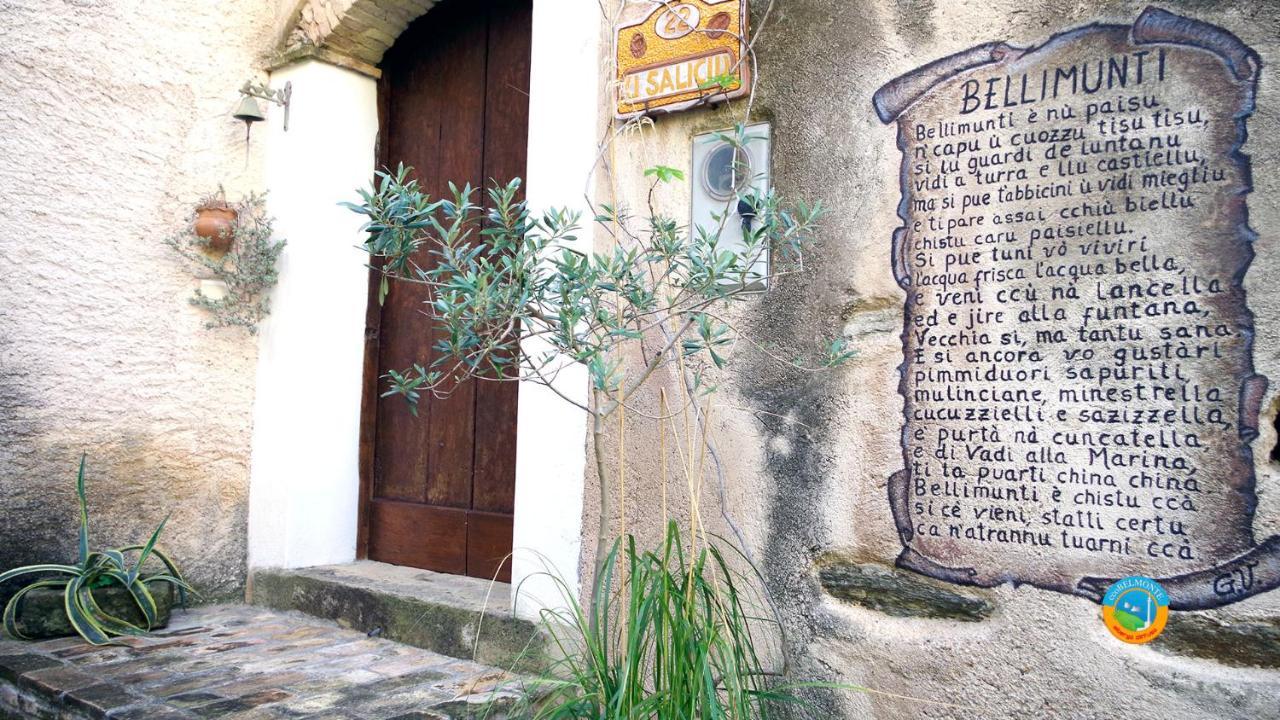 22
I SALICIU
BELLIMUNTI
Bellimunti è nù paisu
n'capu ù cuozzu tisu tisu,
si lu guardi de luntanu
vidi a turra e llu castiellu,
ma si pue t'abbicini ù vidi miegliu
e ti pare assai cchiù biellu
chistu caru paisiellu.
Si pue tuni vò viviri
l'acqua frisca l'acqua bella,
e veni ccù nà lancella
ed e jire alla funtana,
Vecchia si, ma tantu sana
E si ancora vo gustàri
pimmiduori sapuriti,
mulinciane, minestrella
cucuzzielli e sazizzella,
e purtà nà cuncatella,
e di Vadi alla Marina,
ti ta puarti china china
Bellimunti è chistu ccà
si cè vieni, statti certu
ca n'atrannu tuarni ccà
G.V.
BELMONTE